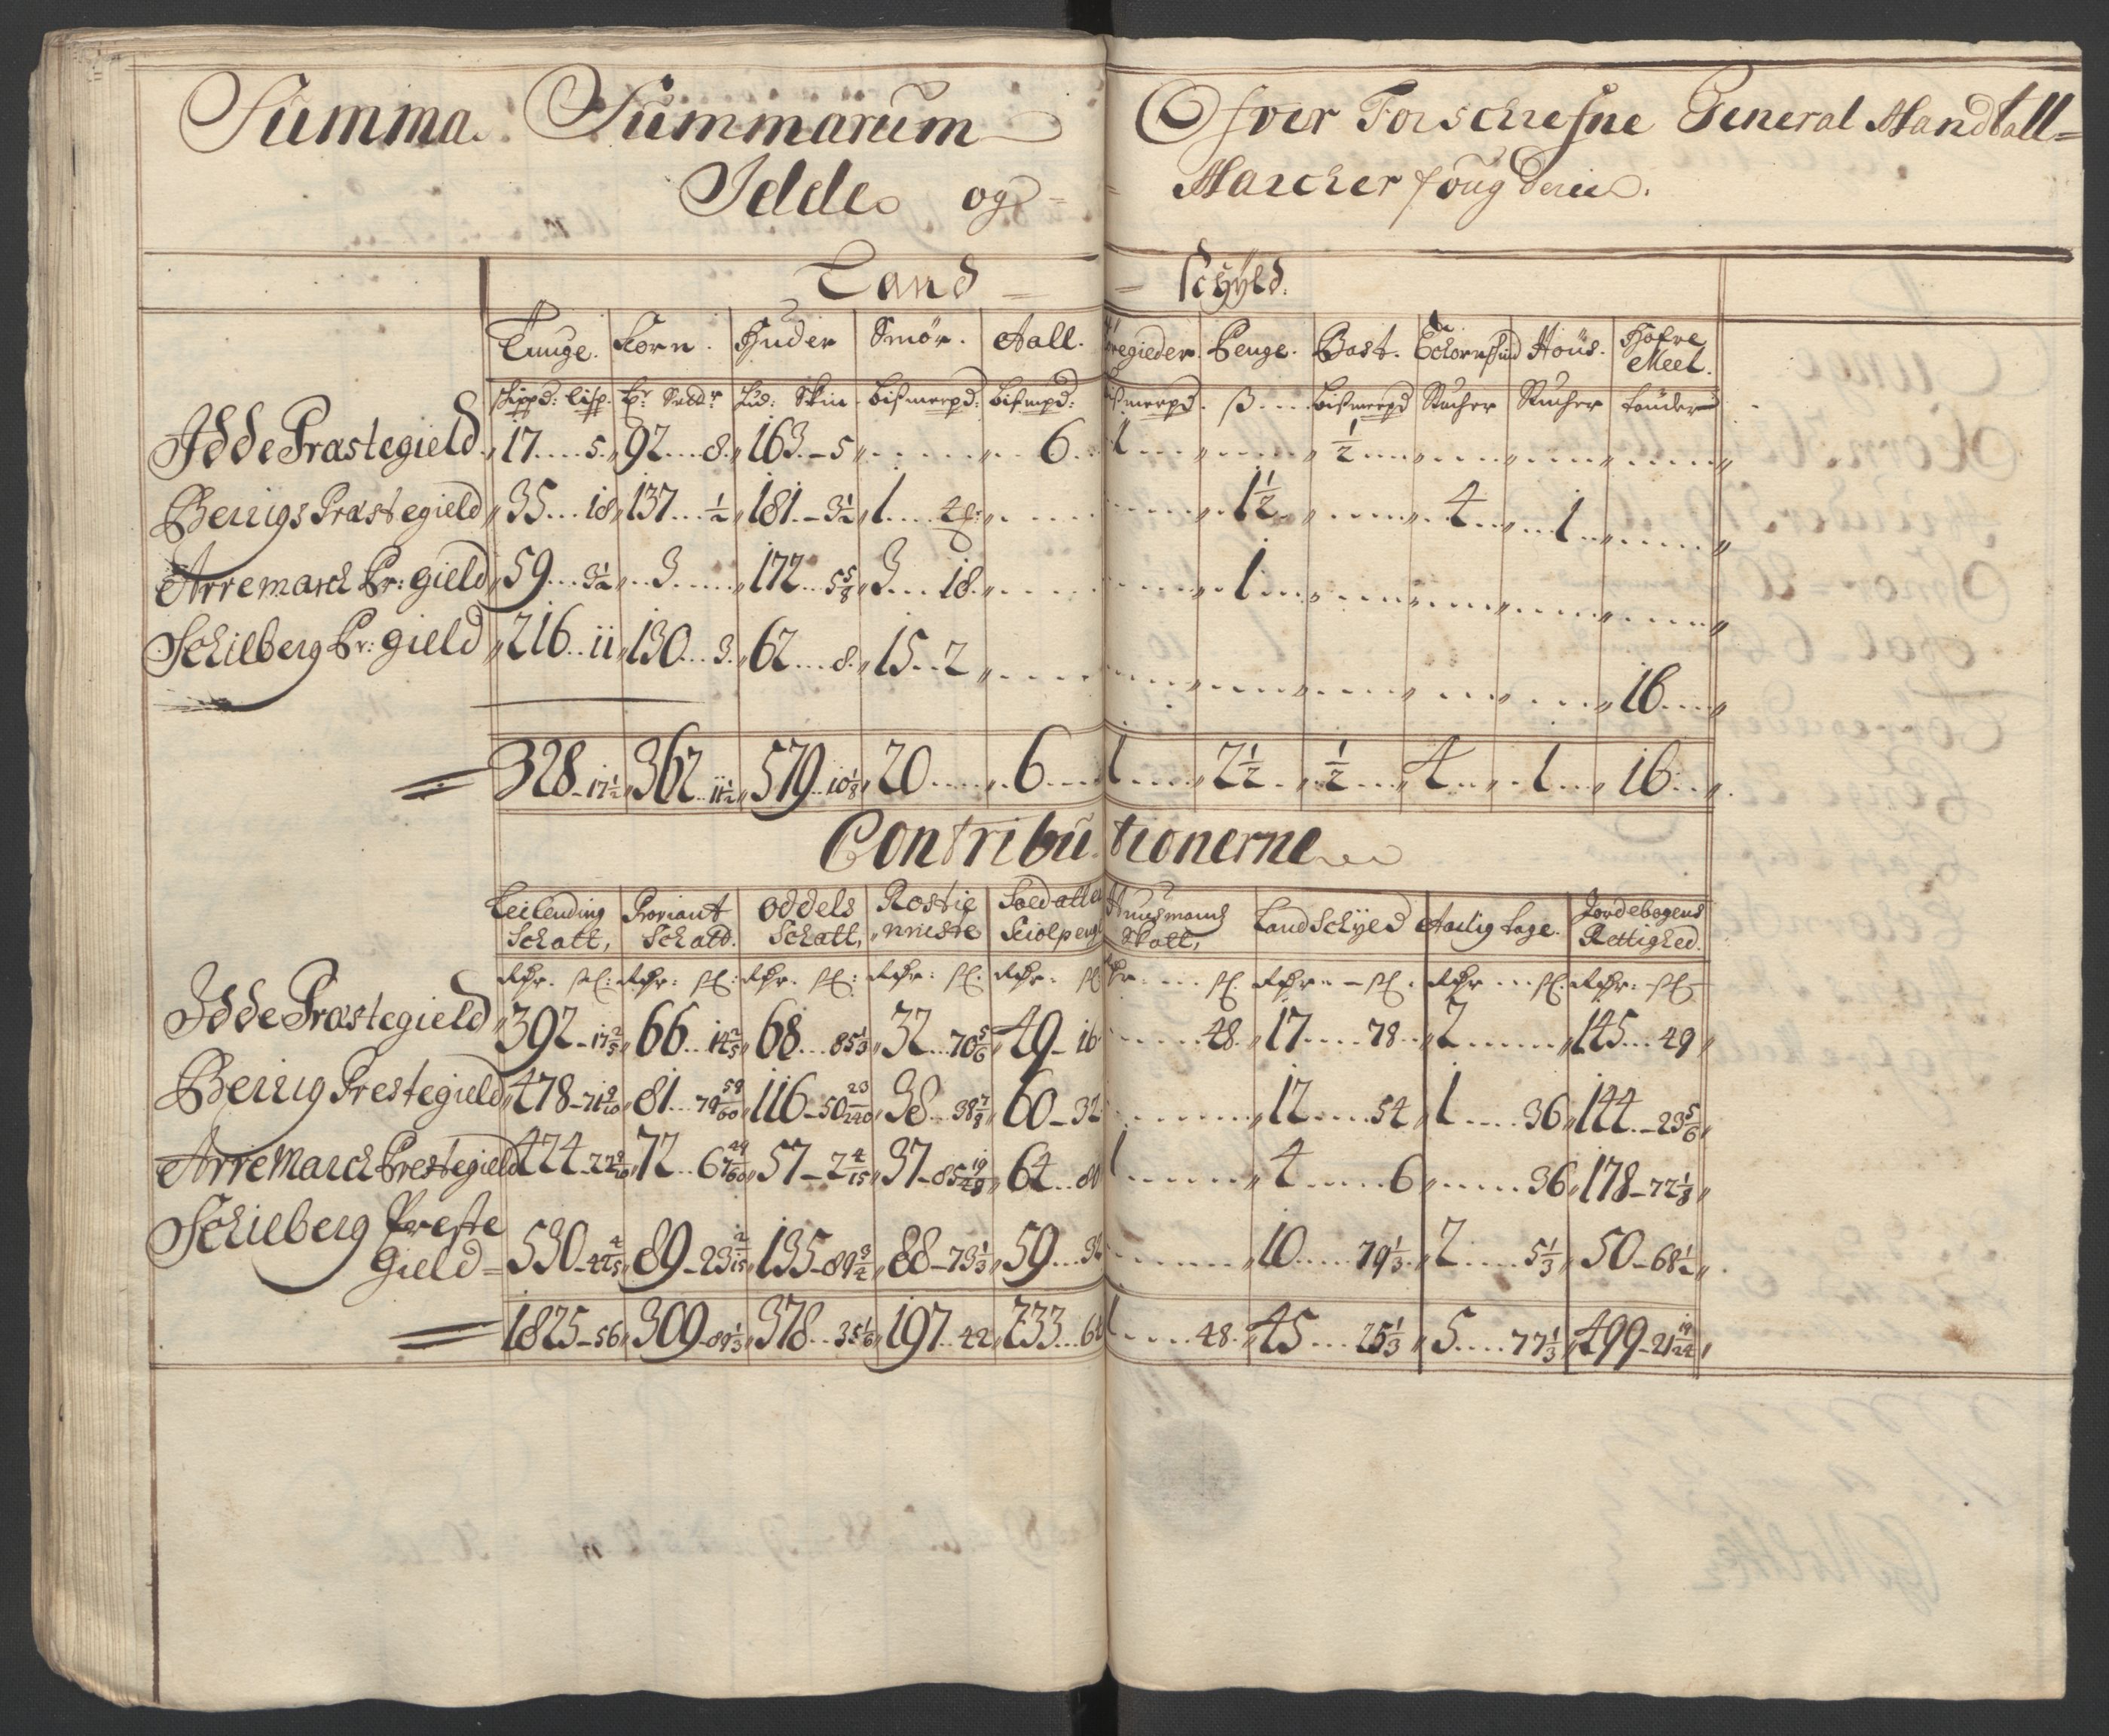 Summa Summarum Ofver Forschrefne General Mandtall
Idde og Marcker fougderie.
Land Schyld.
Tunge. Korn. Huder Smør. Aall. Penge. Bast. Hous. Hafre Meel.
Schippd: Lisp. Hud: Skin Bismerpd: Bismpd: ß. Bismerpd Stucher Stucher tønder
Idde Præstegield 17 5 92 8 163 5 6 1 1/2
Berrigs Præstegield 35 18 137 1/2 181 3 1/2 1 1 1/2 4 1
Arremarch Pr: gield 59 3 1/2 3 172 5 5/8 3 18 1
Schilberg Pr: gield 216 11 130 3 62 8 15 2 16
328 17 1/2 362 11 1/2 579 10 1/8 20 6 1 2 1/2 1/2 4 1 16
Contributionerne
Leilending Schatt, Proviant Schatt. Oddels Schatt, Rostie nneste Soldatter Huusmands Skatt, Land Schyld Aarlig tage. Jordebogens Rettighed.
Rdr. sk: Rdr: sk: Rdr. sk: Rdr: sk: Rdr: sk: sk. Rdr sk. Rdr sk. Rdr: sk
Idde Præstegield 392 17 2/5 66 14 2/5 68 85 1/3 32 70 5/6 49 16 48 17 78 2 145 49
Berrig Prestegield 478 71 9/10 81 79 59/60 116 50 23/240 38 38 7/8 60 32 12 54 1 36 144 23 5/6
Arremarch Prestegield 424 22 9/10 72 67 49/60 57 2 4/15 37 85 64 80 1 4 6 36 178 72 1/8
Schilberg Preste
Gield 530 42 4/5 89 23 2/15 135 89 3/4 88 73 1/3 59 32 10 79 1/3 2 5 1/3 50 68 1/2
1825 56 309 89 1/3 378 35 1/6 197 42 233 64 1 48 45 25 1/3 5 77 1/3 499 21 19/24